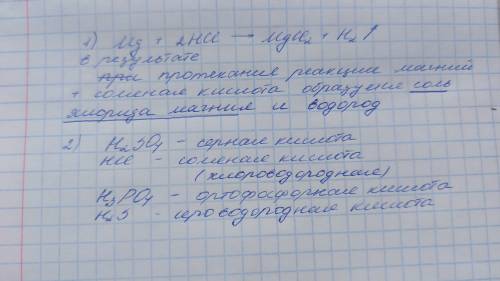 1) Mg + 2HCl → MgCl₂ + H₂↑
в результате
при протекание реакции магний
+ соленая кислота образуение соль
хлорида магния и водород
2) H₂SO₄ - серная кислота
HCl - соленая кислота
(хлороводородная)
H₃PO₄ - ортофосфорная кислота
H₂S - сероводородная кислота